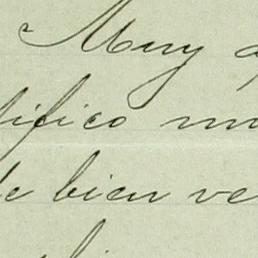 Muy a
tifico mu
de bien ve